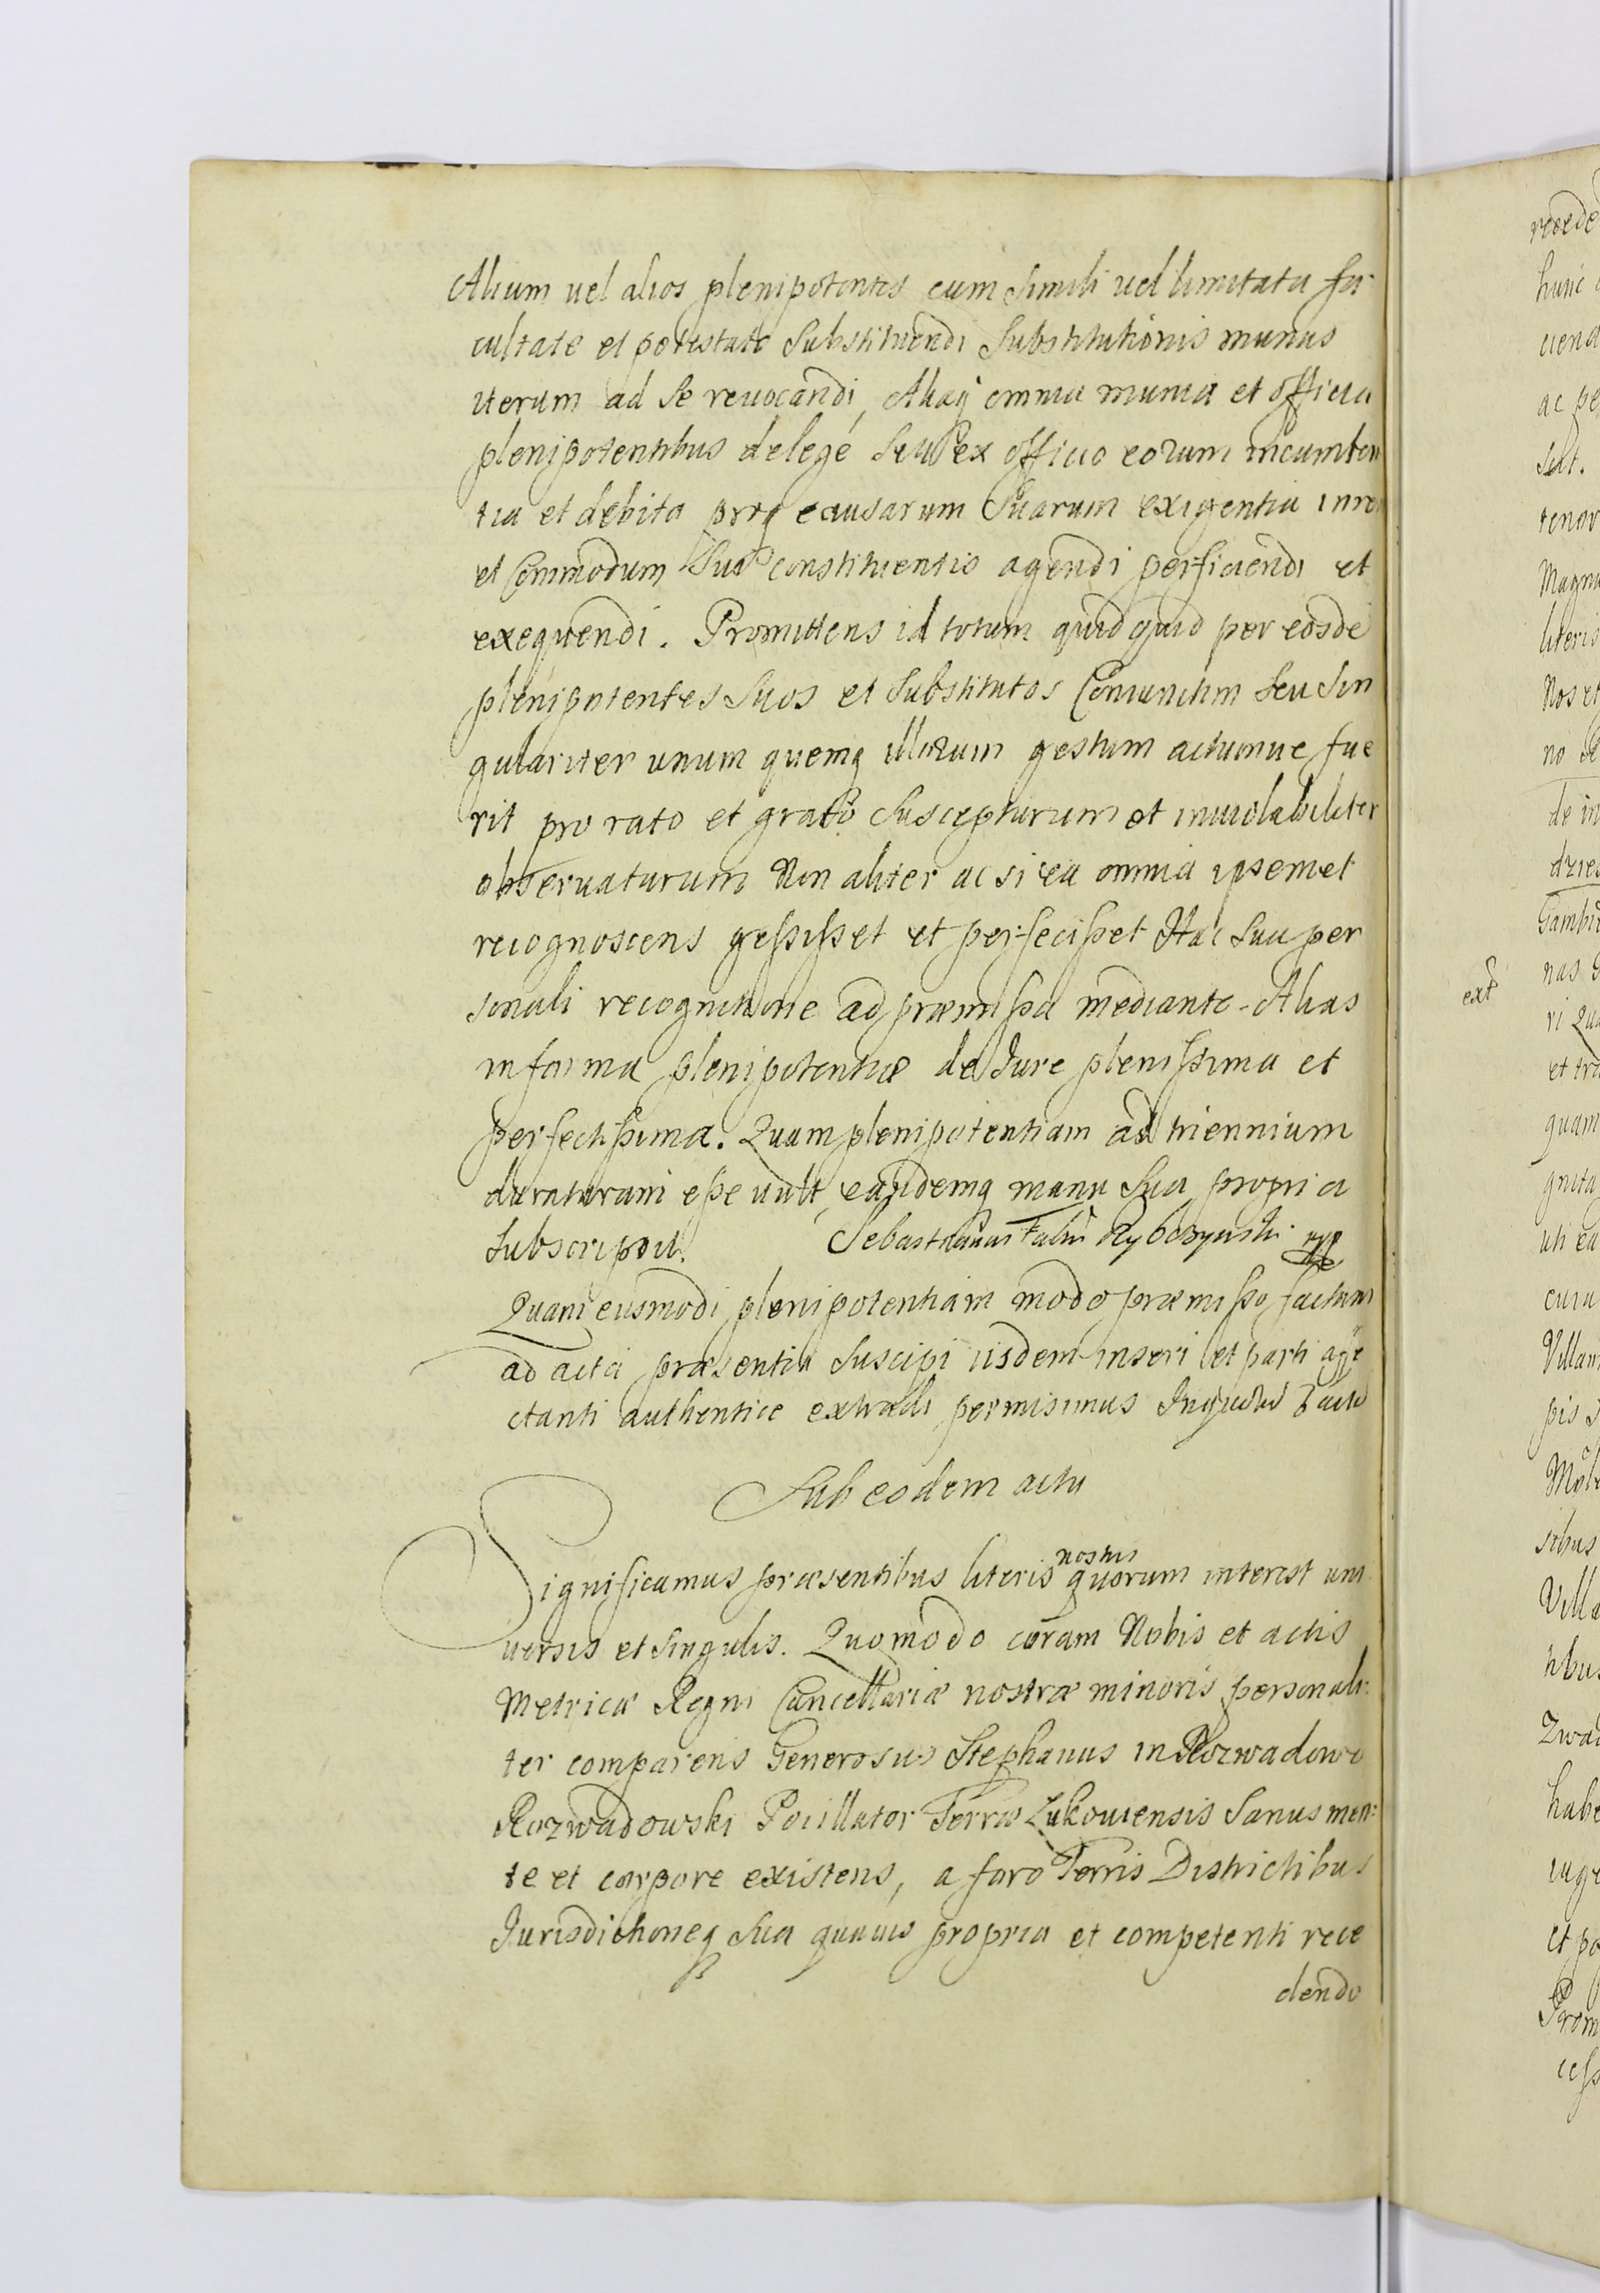 Alium uel alios plenipotentes cum simili uel limitata fa
cultate et potestate substituendi substitutionis munus
iterum ad se reuocandi, Aliaq omnia munia et officia
plenipotentibus delege seu ex officio eorum incumben
tia et debita proq causarum suarum exigentia in rem
et Commodum sui constituentis agendi perficiendi et
exequendi. Promittens id totum quidquid per eosde
plenipotentes suos et substitutos Coniunctim seu sin
gulariter unum quemq illorum gestum actumue fue
rit pro rato et grato suscepturum et inuiolabiliter
obseruaturum Non aliter ac si ea omnia ipsemet
recognoscens gessisset et perfecisset Hac sua per
sonali recognitione ad præmissa mediante. Alias
in forma plenipotentiæ de Jure plenissima et
perfectissima. Quam plenipotentiam ad triennium
duraturam esse uult, eandemq manu sua propria
subscripsit. Sebastianus Rybczynski mp
Quam eiusmodi plenipotentiam modo præmisso factam
ad acta præsentia suscipi iisdem inseri et parti affe
ctanti authentice extradi permisimus
Sub eodem actu
Significamus præsentibus literis nostris quorum interest uni
uersis et singulis. Quomodo coram Nobis et actis
Metricæ Regni Cancellariæ nostræ minoris personali
ter comparens Generosus Stephanus in Rozwadowo
Rozwadowski Pocillator Terræ Lukouiensis sanus men
te et corpore existens, a foro Terris Districtibus
Jurisdictioneq sua quauis propria et competenti rece
dendo
ext